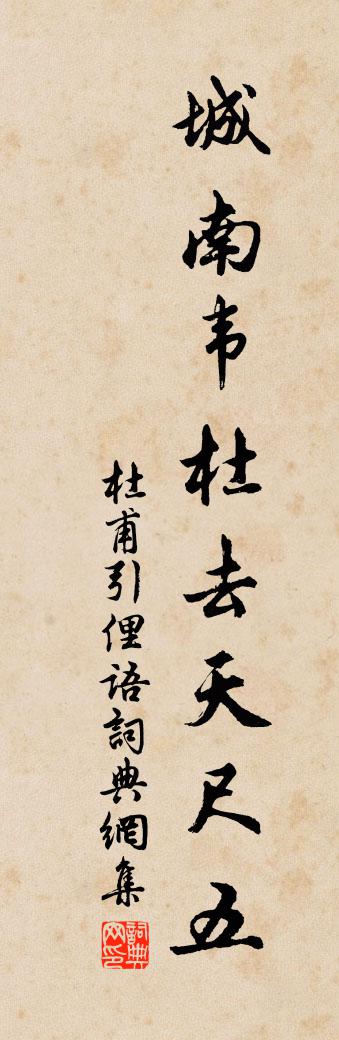 城南韦杜去天尺五
杜甫引俚语詞典網集
詞典网印